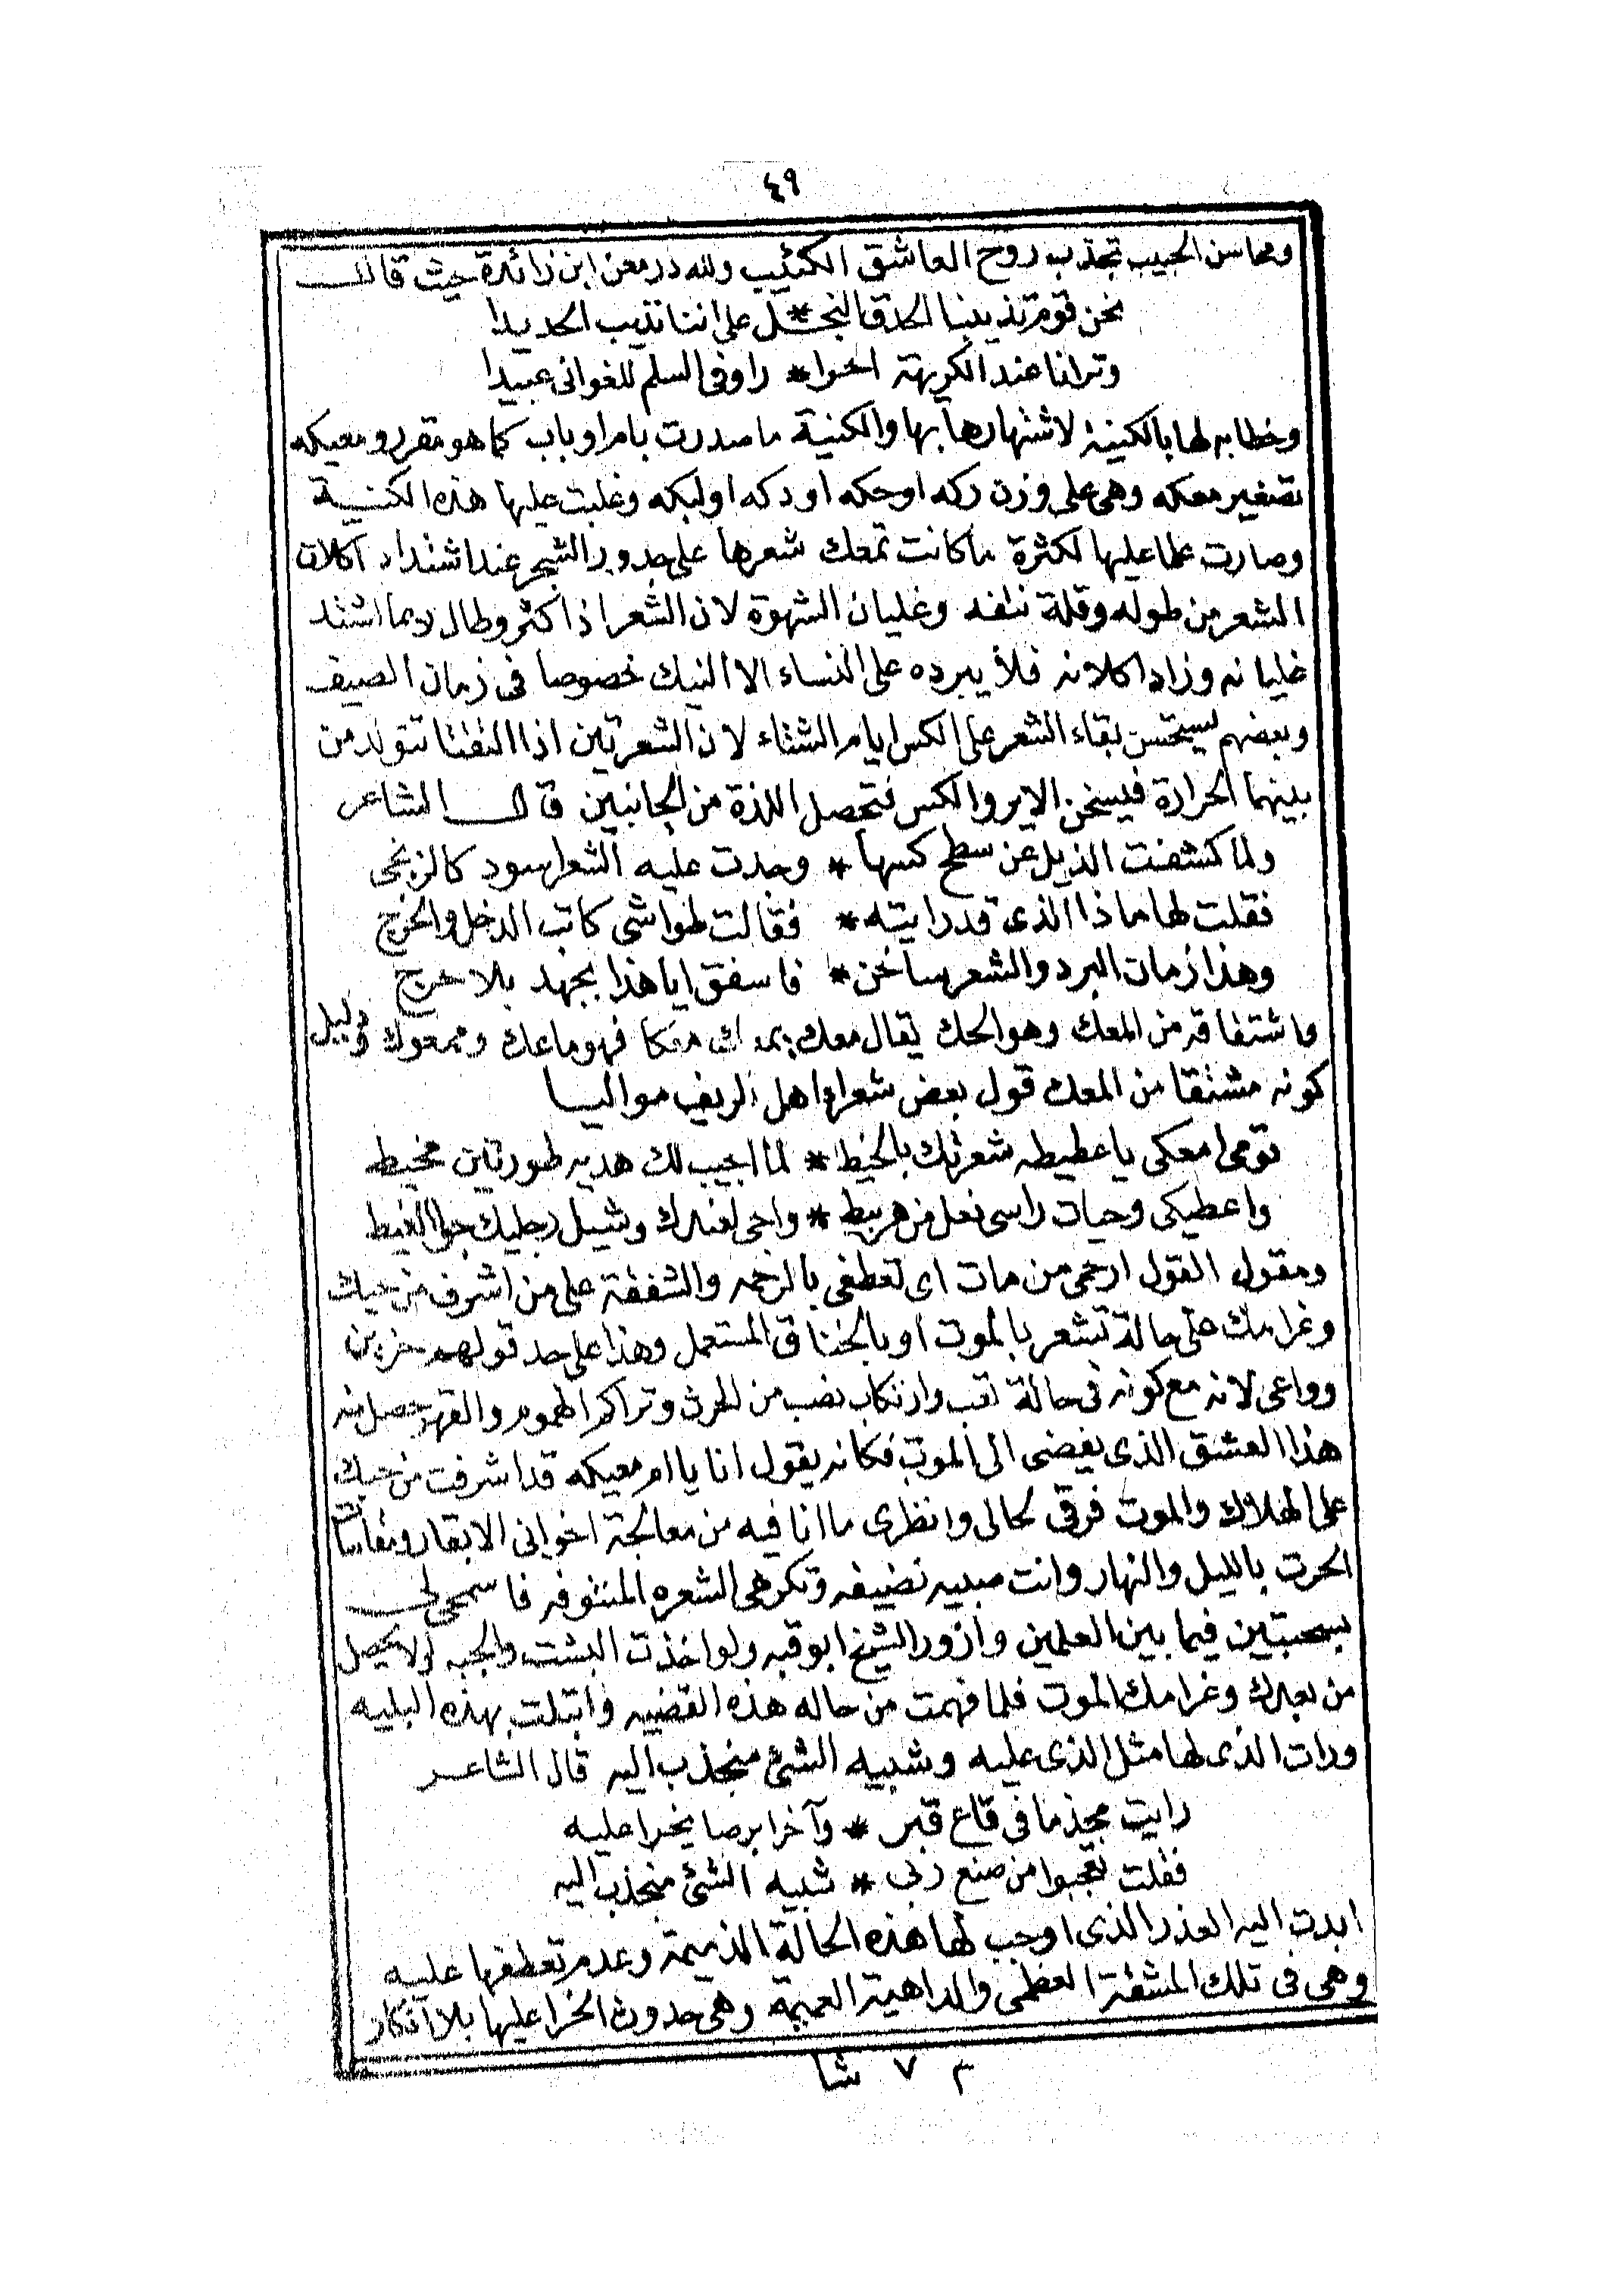 ٤٩
ومحاسن الحبيب تجذب روح العاشق الكئيب ولله در معن ابن زائدة حيث قال
نحن قوم تذيبنا الحدق النجـ * ـل على اننا نذيب الحديدا
وترانا عند الكريهة احرا * را وفى السلم للغوانى عبيدا
وخطابه لها بالكنية لاشتهارها بها والكنية ما صدرت بام او باب كما هو مقرر ومعيكه
تصغير معكه وهى على وزن ركه او حكه او دكه او لبكه وغلبت عليها هذه الكنية
وصارت علما عليها لكثرة ما كانت تمعك شعرها على جدور الشجر عند اشتداد اكلان
الشعر من طوله وقلة نتفه وغليان الشهوة لان الشعر اذا كثر وطال ربما اشتد
غليانه وزاد اكلانه فلا يبرده على النساء الا النيك خصوصا فى زمان الصيف
وبعضهم يستحسن بقاء الشعر على الكس ايام الشتاء لان الشعرتين اذا التفتا تتولد من
بينهما الحرارة فيسخن الاير والكس فتحصل اللذة من الجانبين قال الشاعر
ولما كشفت الذيل عن سطح كسها * وجدت عليه الشعر اسود كالزنجى
فقلت لها ماذا الذى قد رايته * فقالت طواشى كاتب الدخل والخرج
وهذا زمان البرد والشعر ساخن * فاسفق ايا هذا بجهد بلا حرج
واشتقاقه من المعك وهو الحك يقال معك يمعك معكا فهو ماعك وممعوك ودليل
كونه مشتقا من المعك قول بعض شعراء اهل الريف مواليا
قومى امعكى يا عطيطه شعرتك بالخيط * لما اجيب لك هديه طورتين مخيط
واعطيكى وحيات راسى نعل من هربيط * واجى لعندك وشيل رجليك جوا الغيط
ومقول القول ارحمى من مات اى تعطفى بالرحمه والشفقة على من اشرف من حبك
وغرامك على حالة تشعر بالموت او بالخناق المستعمل وهذا على حد قولهم حزين
وواعى لانه مع كونه فى حالة تعب وارتكاب نصب من الحرث وتراكم الهموم والقهر حصل منه
هذا العشق الذى يفضى الى الموت فكانه يقول انا يا ام معيكه قد اشرفت من حبك
على الهلاك والموت فرقى لحالى وانظرى ما انا فيه من معالجة اخوانى الابقار ومقاسات
الحرث بالليل والنهار وانت صبيه نضيفه وتكرهى الشعره المنتوفه فاسمحى لى
بسحبتين فيما بين العلمين وازور الشيخ ابو قبه ولو اخذت البشت والجبه لولا يحصل
من بعدك وغرامك الموت فلما فهمت من حاله هذه القضيه وابتلت بهذه البليه
ورات الذى لها مثل الذى عليه وشبيه الشئ منجذب اليه قال الشاعر
رايت مجذما فى قاع قبر * وآخر ابرصا يخرا عليه
فقلت تعجبوا من صنع ربى * شبيه الشئ منجذب اليه
ابدت اليه العذر الذى اوجب لها هذه الحالة الذميمة وعدم تعطفها عليه
وهى فى تلك المشقة العظمى والداهية العميمة وهى حدوث الخرا عليها بلا انكار
م ٧ شا